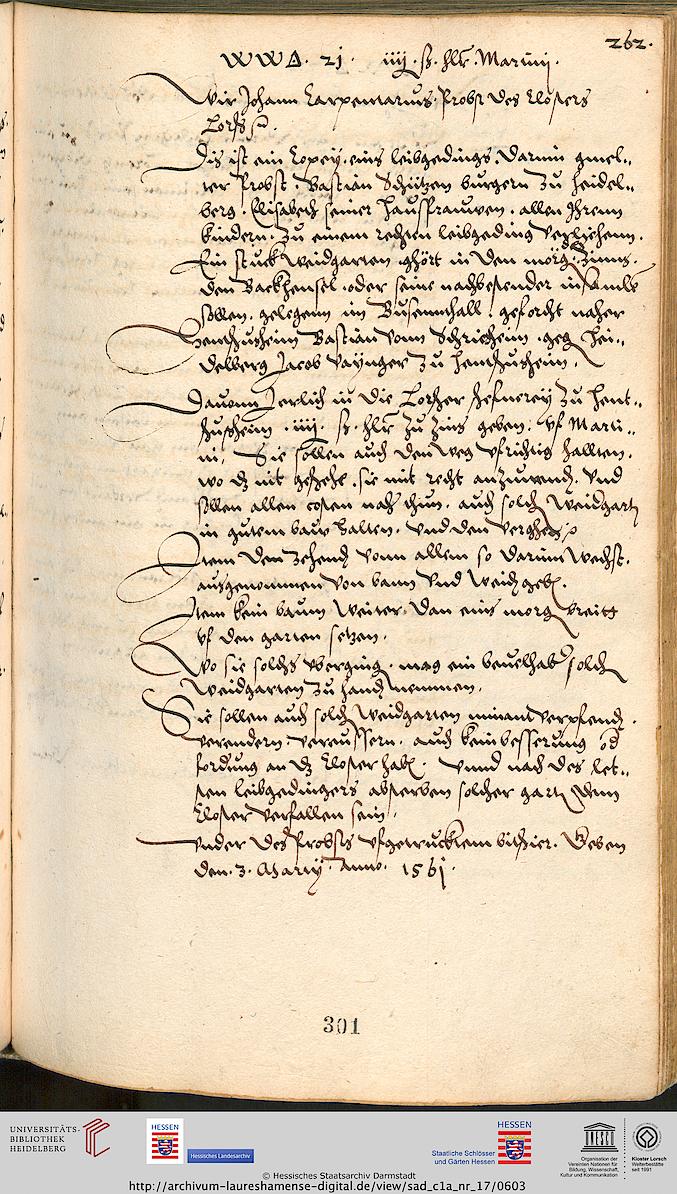 262.
WWA. 21. iiij. ß. hlr. Martinij.
Wir Johann Carpentarius. Probst des Closters
Lorsch
Dis ist ein Copey. eins leibgedings. darinn gmel..
ter Probst. Bastian Schützen burgern zu heidel..
berg. Elisabeth seiner haußfrauwen. allen Ihrenn
kindern. zu einem rechten leibgeding verlichenn.
Ein stuck Weidgarten. ghört in den
den Backhensel. oder seine nachbestender
söllen. gelegenn im Busennthall. geforcht naher
Hentschusheim Bastian vonn Schrießheim. geg Hei..
delberg Jacob Vaynger zu hentschusheim.
Dauonn Jerlich in die Lorscher hefnerey zu hent..
schusheim. iiij. ß. hlr zu zins geben. vf Marti..
ni. Sie sollen auch den weg vfrichtig hallten.
wo dz nit geschehe. sie mit recht anzuwend. Vnd
sollen allen costen nach thun. auch solch Weidgart
in gutem bauw halten. vnd den
Item den zehend vonn allem so darinn Wechst.
ausgenommen von baum vnd Weid geb.
Item kein baum weiter. dan eins morg breitt
vf den garten setzen.
Wo sie solchs vberging. mag ein beuelhab solch
Weidgarten zu hand nemmen.
Sie sollen auch solch Weidgarten niemant verpfend.
verendern. vereussern. auch kein besserung od
fordung an dz Closter hab. Vnnd nach des let..
sten leibgedingers absterben solcher gart dem
Closter verfallen sein.
Vnder des Probsts vfgetrucktem bitschier. Geben
den. 3. Martij. Anno. 1561.
301
UNIVERSITÄTS-
BIBLIOTHEK
HEIDELBERG
HESSEN
Hessisches Landesarchiv
Staatliche Schlösser
und Gärten Hessen
HESSEN
UNESCO
Organisation der
Vereinten Nationen für
Bildung, Wissenschaft,
Kultur und Kommunikation
Kloster Lorsch
Welterbestätte
seit 1991
© Hessisches Staatsarchiv Darmstadt
http://archivum-laureshamense-digital.de/view/sad_c1a_nr_17/0603